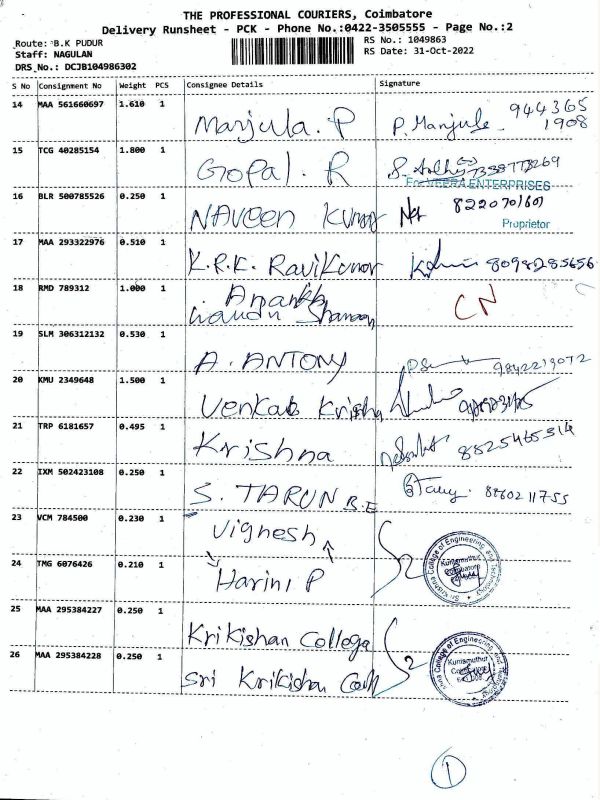 THE PROFESSIONAL COURIERS, Coimbatore
Delivery Runsheet - PCK - Phone No.:0422-3505555 - Page No.:2
Route: B.K PUDUR
RS No.: 1049863
Staff: NAGULAN
RS Date: 31-Oct-2022
DRS_No.: DCJB104986302
S No Consignment No Weight PCS Consignee Details Signature
14 MAA 561660697 1.610 1 Manjula. P P. Manjula 944365
1908
15 TCG 40285154 1.800 1 Gopal. R
For VEERA ENTERPRISES
16 BLR 500785526 0.250 1 NAVEEN Kumar 8220701601
Proprietor
17 MAA 293322976 0.510 1 K.R.K. RaviKumar 8098285656
18 RMD 789312 1.000 1 CN
19 SLM 306312132 0.530 1 A. ANTONY 9842219072
20 KMU 2349648 1.500 1
21 TRP 6181657 0.495 1 Krishna 8825465314
22 IXM 502423108 0.250 1 S. TARUN B.E
23 VCM 784500 0.230 1 Vignesh
24 TMG 6076426 0.210 1 Harini P 2
Sri Krishna College of Engineering and Technology
25 MAA 295384227 0.250 1 Krikishan College
26 MAA 295384228 0.250 1 Sri Krikishan 2
1